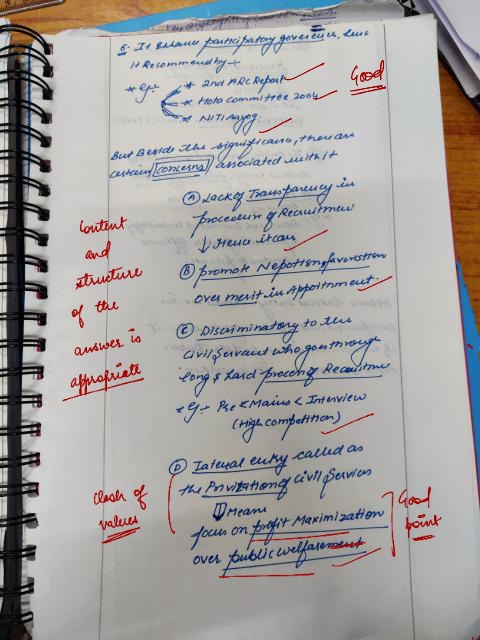 6. It Enhance participatory governance, hence
it Recommend by →
* eg:- * 2nd ARC Report
* Hota Committee 2004
* NITI Aayog
Good
But Beside the significance, there are
certain concerns associated with it
(A) Lack of Transparency in
procedure of Recruitment
↓ Hence it can
(B) promote Nepotism, favouratism
over merit in Appointment.
(C) Discriminatory to the
Civil Servant who goes through
long & hard process of Recruitme
* eg → Pre < Mains < Interview
(High competition)
Content
and
structure
of the
answer is
appropriate
(D) Lateral entry called as
the Privitation of Civil Services
⇓ Means
focus on profit Maximization
over public welfare
Clash of
values
Good
point